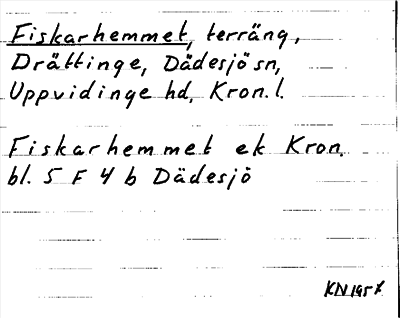 Fiskarhemmet, terräng,
Drättinge, Dädesjö sn,
Uppvidinge hd, Kron. l.
Fiskarhemmet ek Kron.
bl. 5 F 4 b Dädesjö